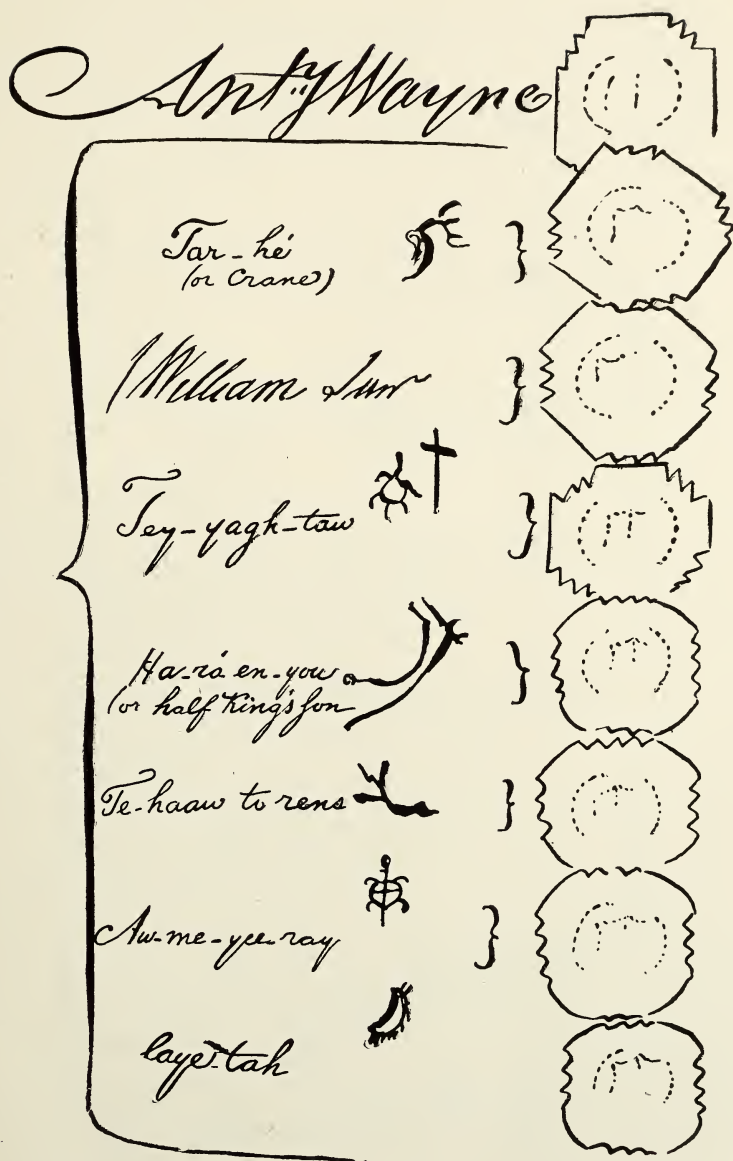 Anty Wayne
Tar-hé
(or Crane)
William Jun
Tey-yagh-taw
Ha-rá en-you
(or half King's son
Te-haaw to rens
Aw-me-yee-ray
laye-tah